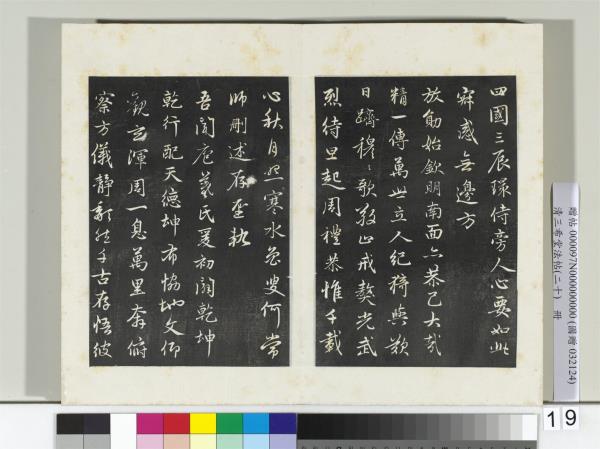 四國三辰環侍旁人心要如此
宰感無邊方
放勛始欽明南面亦恭己大哉
精一傳萬世立人紀猗歟歎
日躋穆穆歌敬止戒獒光武
烈待旦起周禮恭惟千載
心秋月照寒水魯叟何常
師刪述存聖軌
吾聞庖羲氏爰初闢乾坤
乾行配天德坤布協地文仰
觀玄渾周一息萬里奔俯
察方儀靜頹然千古存悟彼
贈帖 000097N000000000 (圖贈 032124)
清三希堂法帖(二十) 冊
19